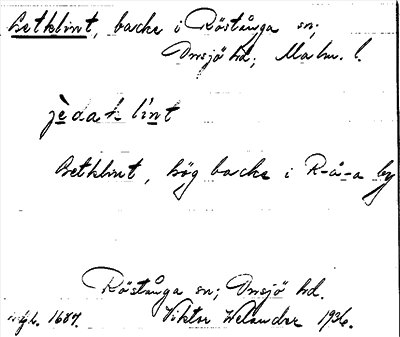 Getklint, backe i Röstånga sn;
Onsjö hd; Malm. l.
jèdak lint
Getklint, hög backe i R-å-a by
Röstånga sn; Onsjö hd.
1687. Viktor Welander 1936.